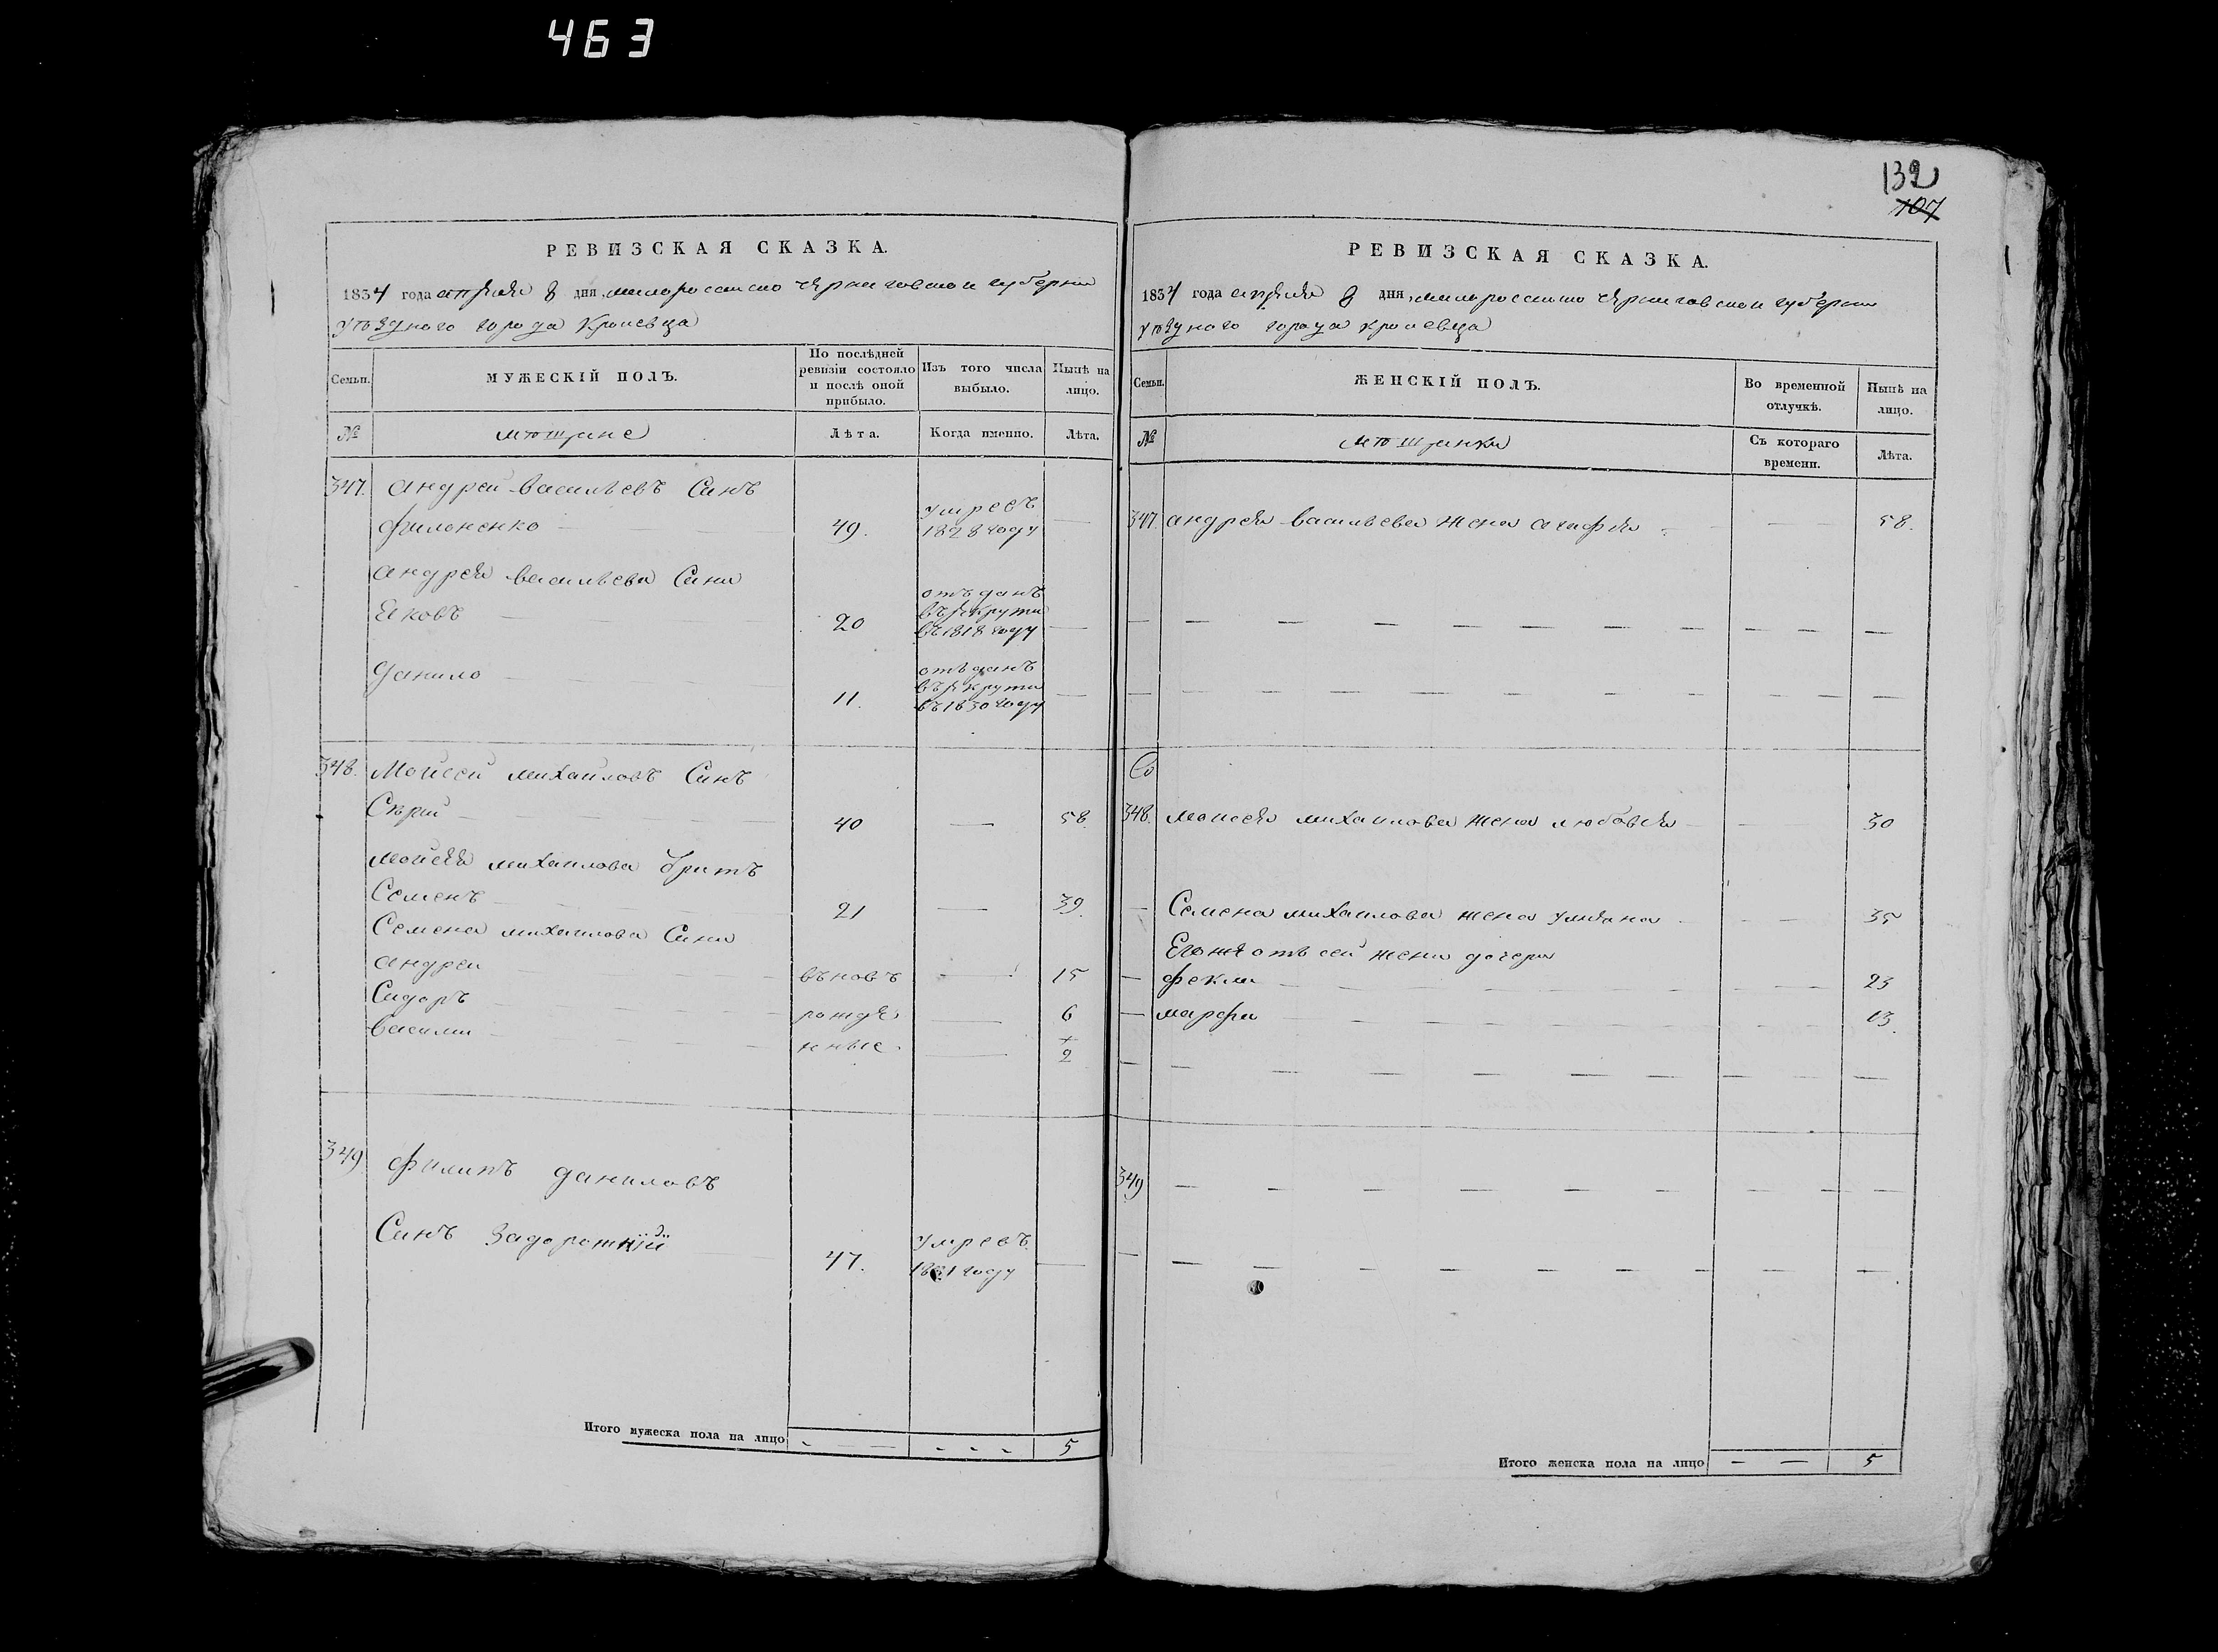 463
132
107
РЕВИЗСКАЯ СКАЗКА.
1834 года апреля 8 дня, малороссийско черниговской губернии
уѣздного города Кролевца
Семьи.
МУЖЕСКІЙ ПОЛЪ.
По послѣдней ревизіи состояло и послѣ оной прибыло.
Изъ того числа выбыло.
Нынѣ на лицо.
№
мѣщане
Лѣта.
Когда именно.
Лѣта.
347. андрей васильевъ Синъ
филоненко 49. умревъ 1828 году
андрея васильева Сини
Яковъ 20 отъданъ въ рекрути въ 1818 году
данило 11. отъданъ въ рекрути въ 1830 году
348. Мойсей михайловъ Синъ
Сѣрий 40 58.
мойсея михайлова братъ
Семенъ 21 39.
Семена михайлова Сини
андрей вновъ 15
Сидоръ рожде 6
василий нные 2
349 филипъ даниловъ
Синъ Задорожнїй 47. умревъ 1831 году
Итого мужеска пола на лицо 5
РЕВИЗСКАЯ СКАЗКА.
1834 года апреля 8 дня, малороссийско черниговской губернии
уѣздного города кролевца
Семьи.
ЖЕНСКІЙ ПОЛЪ.
Во временной отлучкѣ.
Нынѣ на лицо.
№
мѣщанки
Съ котораго времени.
Лѣта.
347. андрея васильева жена агафия 58.
348. мойсея михайлова жена любовъ 30
Семена михайлова жена улияна 35
Его же отъ сей жени дочери
фекла 23
марфа 13.
349
Итого женска пола на лицо 5